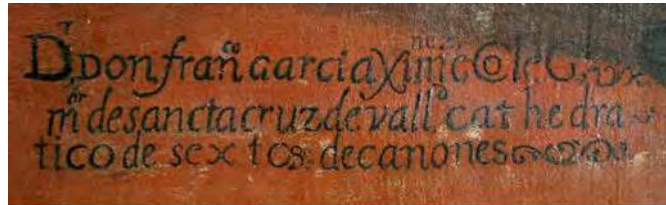 Dr. Don franco Garcia Ximenez Coleg
mor de sancta cruz de vallid cathedra
tico de sexto de canones